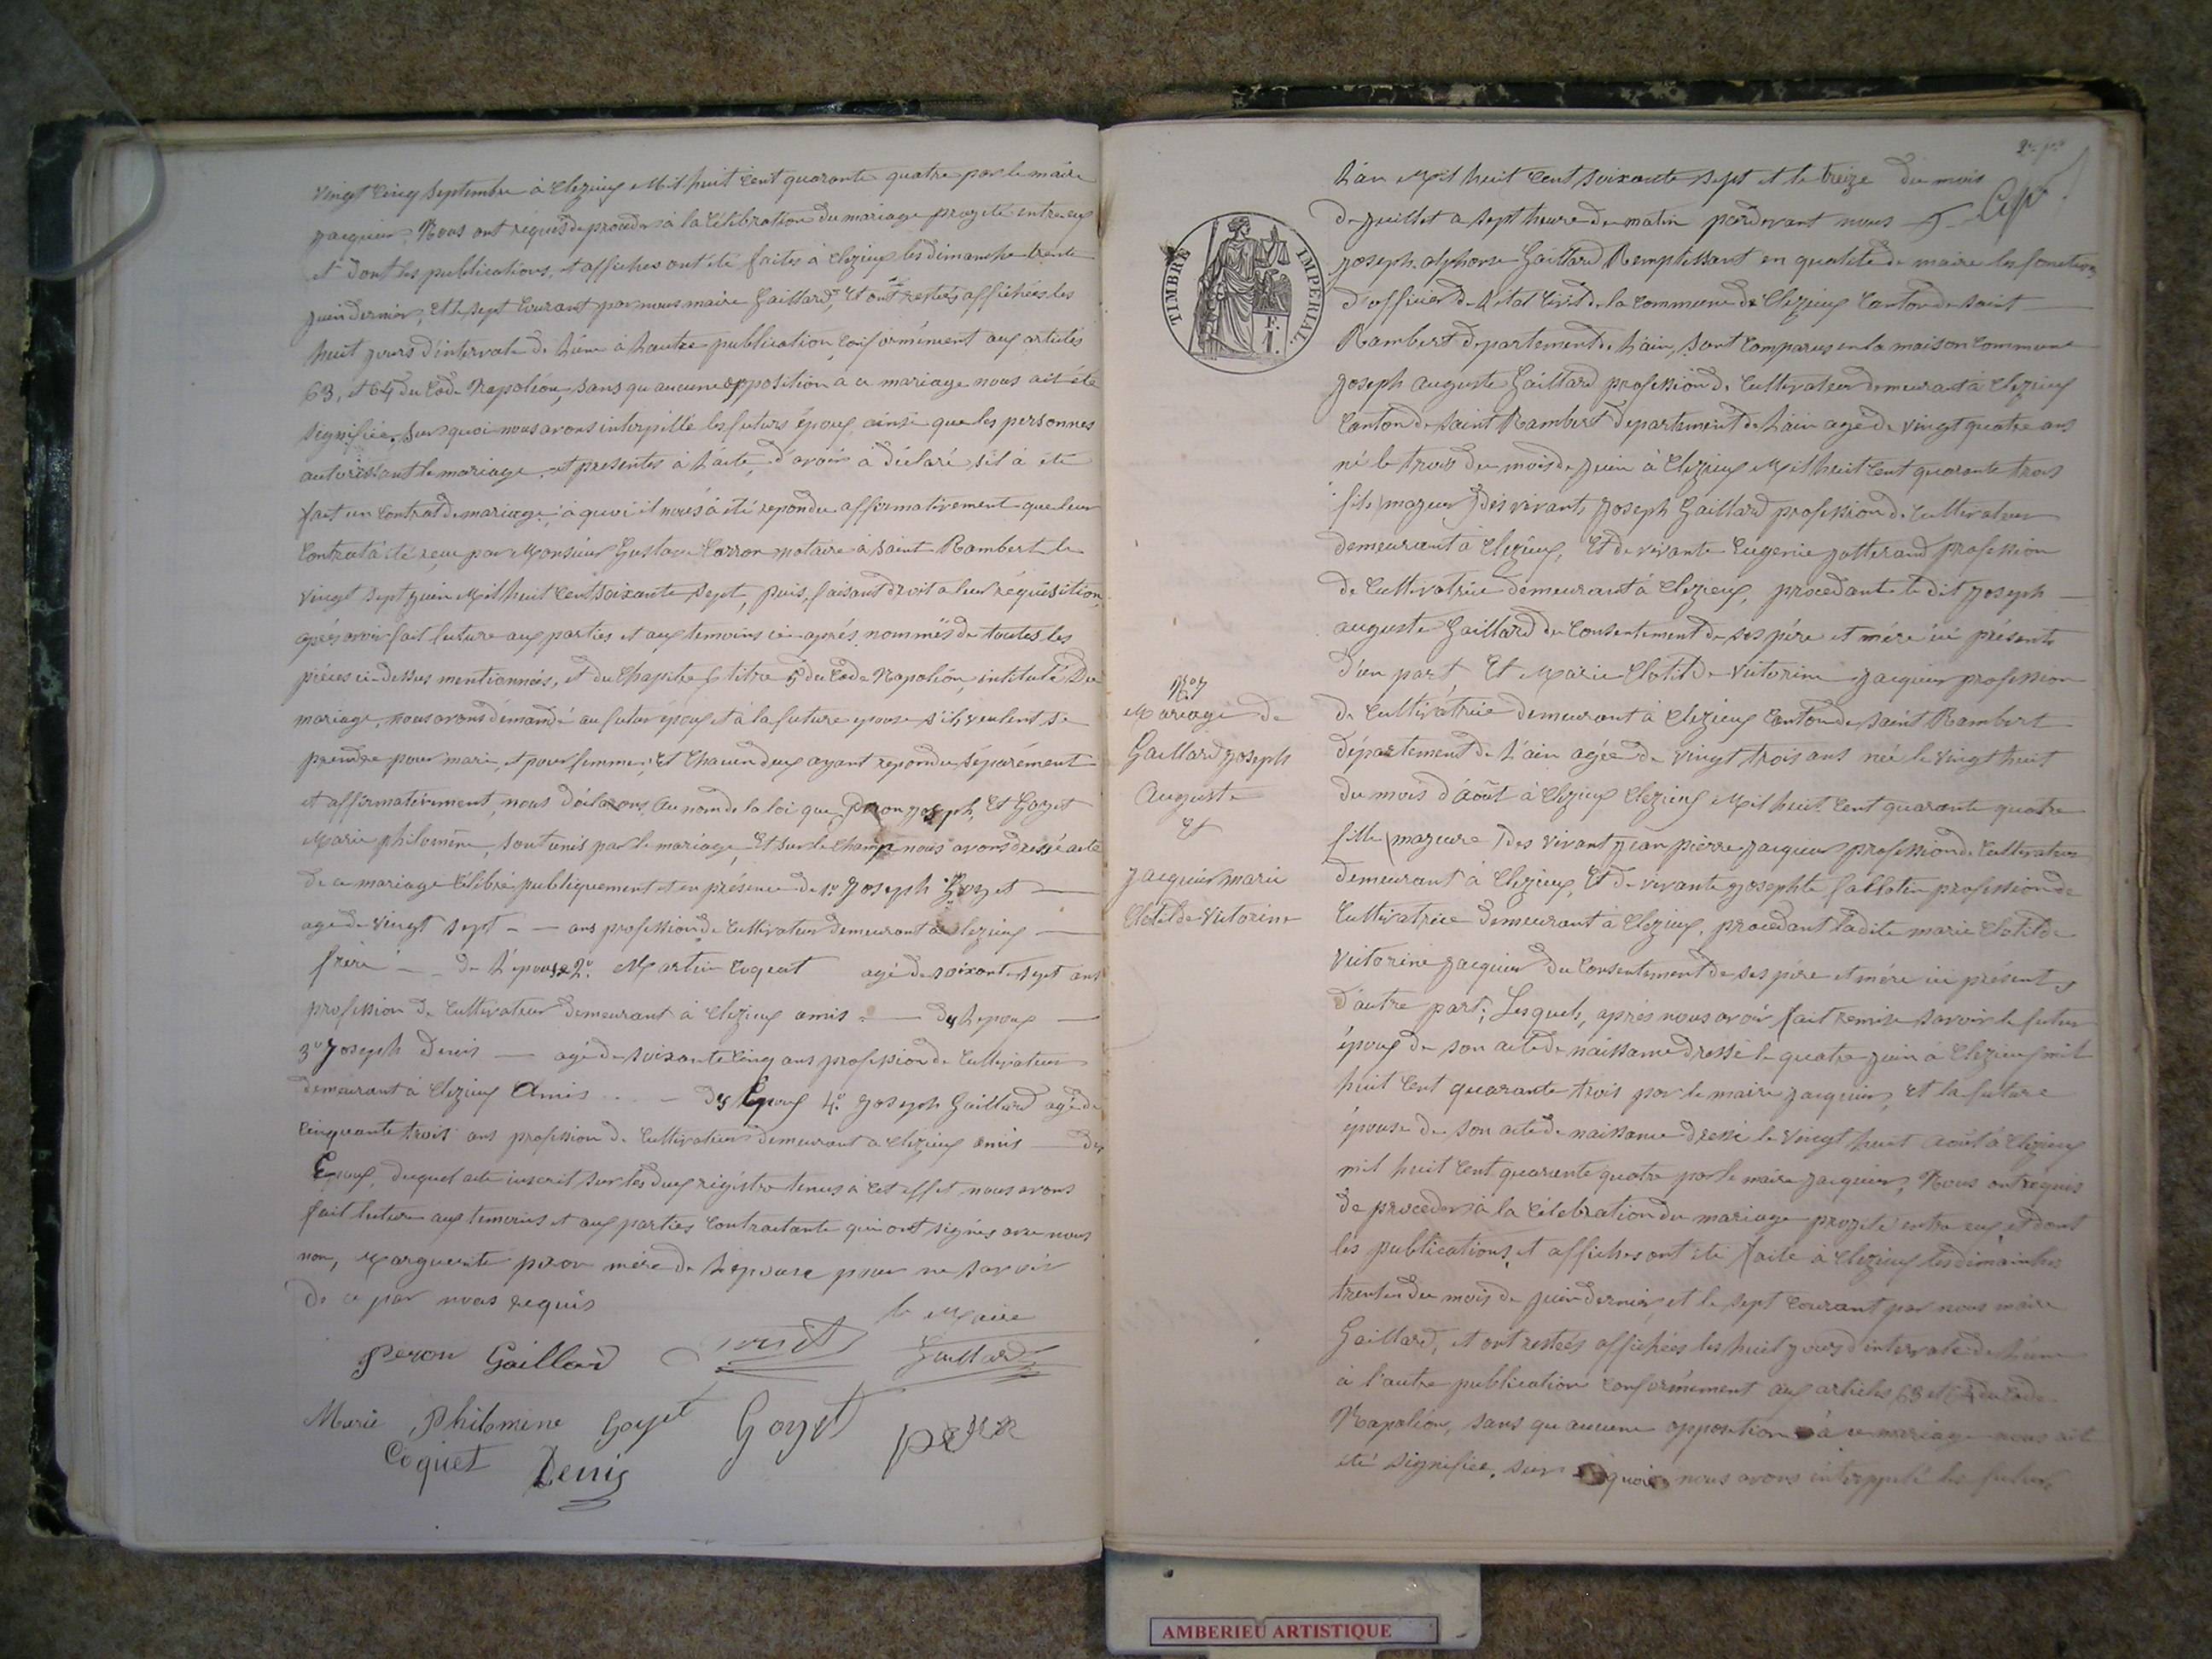 vingt cinq septembre à Clezieux Mil huit cent quarante quatre par le maire
Jacquier. Nous ont requis de proceder à la Célébration du mariage projeté entre eux
et dont les publications, et affiches ont été faites à Clezieux les dimanche trente
juin dernier, et le sept Courant par nous maire Gaillard, Et ont restés affichées les
huit jours d'intervale de l'une à l'autre publication conformément aux articles
63, et 64 du Code Napoléon, sans qu'aucune opposition a ce mariage nous ait été
signifiée, sur quoi nous avons interpellé les futurs époux ainsi que les personnes
autorissant le mariage et presentes à l'acte, d'avoir à déclaré s'il à été
fait un Contrat de mariage, à quoi il nous à été repondu affirmativement que leur
Contrat à été reçu par Monsieur Gustave Carron notaire à Saint Rambert le
vingt sept juin Mil huit Cent soixante sept, puis, faisant droit a leur réquisition,
après avoir fait lecture aux parties et aux temoins ci-après nommés de toutes les
pièces ci-dessus mentionnées, et du Chapitre 6 titre 5 du Code Napoléon, intitulé Du
mariage, nous avons démandé au futur époux et à la future epouse s'ils veulent se
prendre pour mari, et pour femme, Et Chacun d'eux ayant repondu séparément
et affirmativement, nous déclarons au nom de la loi que Peron Joseph, Et Goyet
Marie philomène, sont unis par le mariage, Et sur le champ nous avons dressé acte
de ce mariage Célébré publiquement et en présence de 1º Joseph Goyet
agé de vingt sept - - ans profession de Cultivateur demeurant à Clezieux
frère - - de l'épouse 2º. Martin Coquet agé de soixante sept ans
profession de Cultivateur demeurant à Clezieux amis - des Lepoux
3º Joseph Denis - agé de soixante cinq ans profession de Cultivateur
demeurant à Clezieux Amis - des Epoux 4º. Joseph Gaillard agé de
Cinquante trois ans profession de Cultivateur demeurant a Clezieux amis des
Epoux, duquel acte inscrit sur les deux régistre tenus à cet effet nous avons
fait lecture aux temoins et aux parties Contractante qui ont signés avec nous
non, Marguerite peron mère de L'epouse pour ne savoir
de ce par nous requis
le Maire
Peron Gaillard Gaillard
Marie Philomine Goyet Goyet
Coquet Denis
L'an Mil huit Cent soixante sept et le treize du mois
de juillet a sept heure du matin pardevant nous
TIMBRE IMPERIAL
Joseph alphonse Gaillard Remplissant en qualité de maire les fonctions
d'officier de l'état Civil de la Commune de Clezieux Canton de Saint
Rambert departement de L'ain, sont Comparus en la maison Commune
Joseph auguste Gaillard profession de Cultivateur demeurant à Clezieux
Canton de Saint Rambert departement de L'ain agé de vingt quatre ans
né le trois du mois de juin à Clezieux Mil huit Cent quarante trois
fils (majeur) des vivants Joseph Gaillard profession de Cultivateur
demeurant à Clezieux, Et de vivante Eugenie Jotterand profession
de Cultivatrice demeurant à Clezieux, procedant le dit Joseph
auguste Gaillard du Consentement de ses père et mère ici présents
d'un part Et Marie Clotilde Victorine Jacquier profession
de Cultivatrice demeurant à Clezieux Canton de Saint Rambert
département de L'ain agée de vingt trois ans née le vingt huit
du mois d'Août à Clezieux Clezieux Mil huit Cent quarante quatre
fille (majeure) des vivant Jean pierre Jacquier profession de Cultivateur
demeurant à Clezieux, Et de vivante Josephte Falloten profession de
Cultivatrice demeurant à Clezieux, procedant ladite marie Clotilde
Victorine Jacquier du Consentement de ses père et mère ici présents
d'autre part; Lesquels, après nous avoir fait remise savoir le futur
époux de son acte de naissance dressé le quatre juin à Clezieux mil
huit Cent quarante trois par le maire Jacquier, Et la future
épouse de son acte de naissance dressé le vingt huit Août à Clezieux
mil huit Cent quarante quatre par le maire Jacquier, Nous ont requis
de proceder à la Célebration du mariage projeté entre eux, et dont
les publications, et affiches ont été faite à Clezieux les dimanches
trente du mois de juin dernier, et le sept Courant par nous maire
Gaillard, et ont restées affichées les huit jours d'intervale de L'une
à l'autre publication conformément aux articles 63 et 64 du Code
Napoléon, sans qu'aucune opposition à ce mariage nous ait
été signifiée, sur quoi nous avons interppelé les futurs
Nº 7
Mariage de
Gaillard Joseph
Auguste
Et
Jacquier Marie
Clotilde Victorine
AMBERIEU ARTISTIQUE